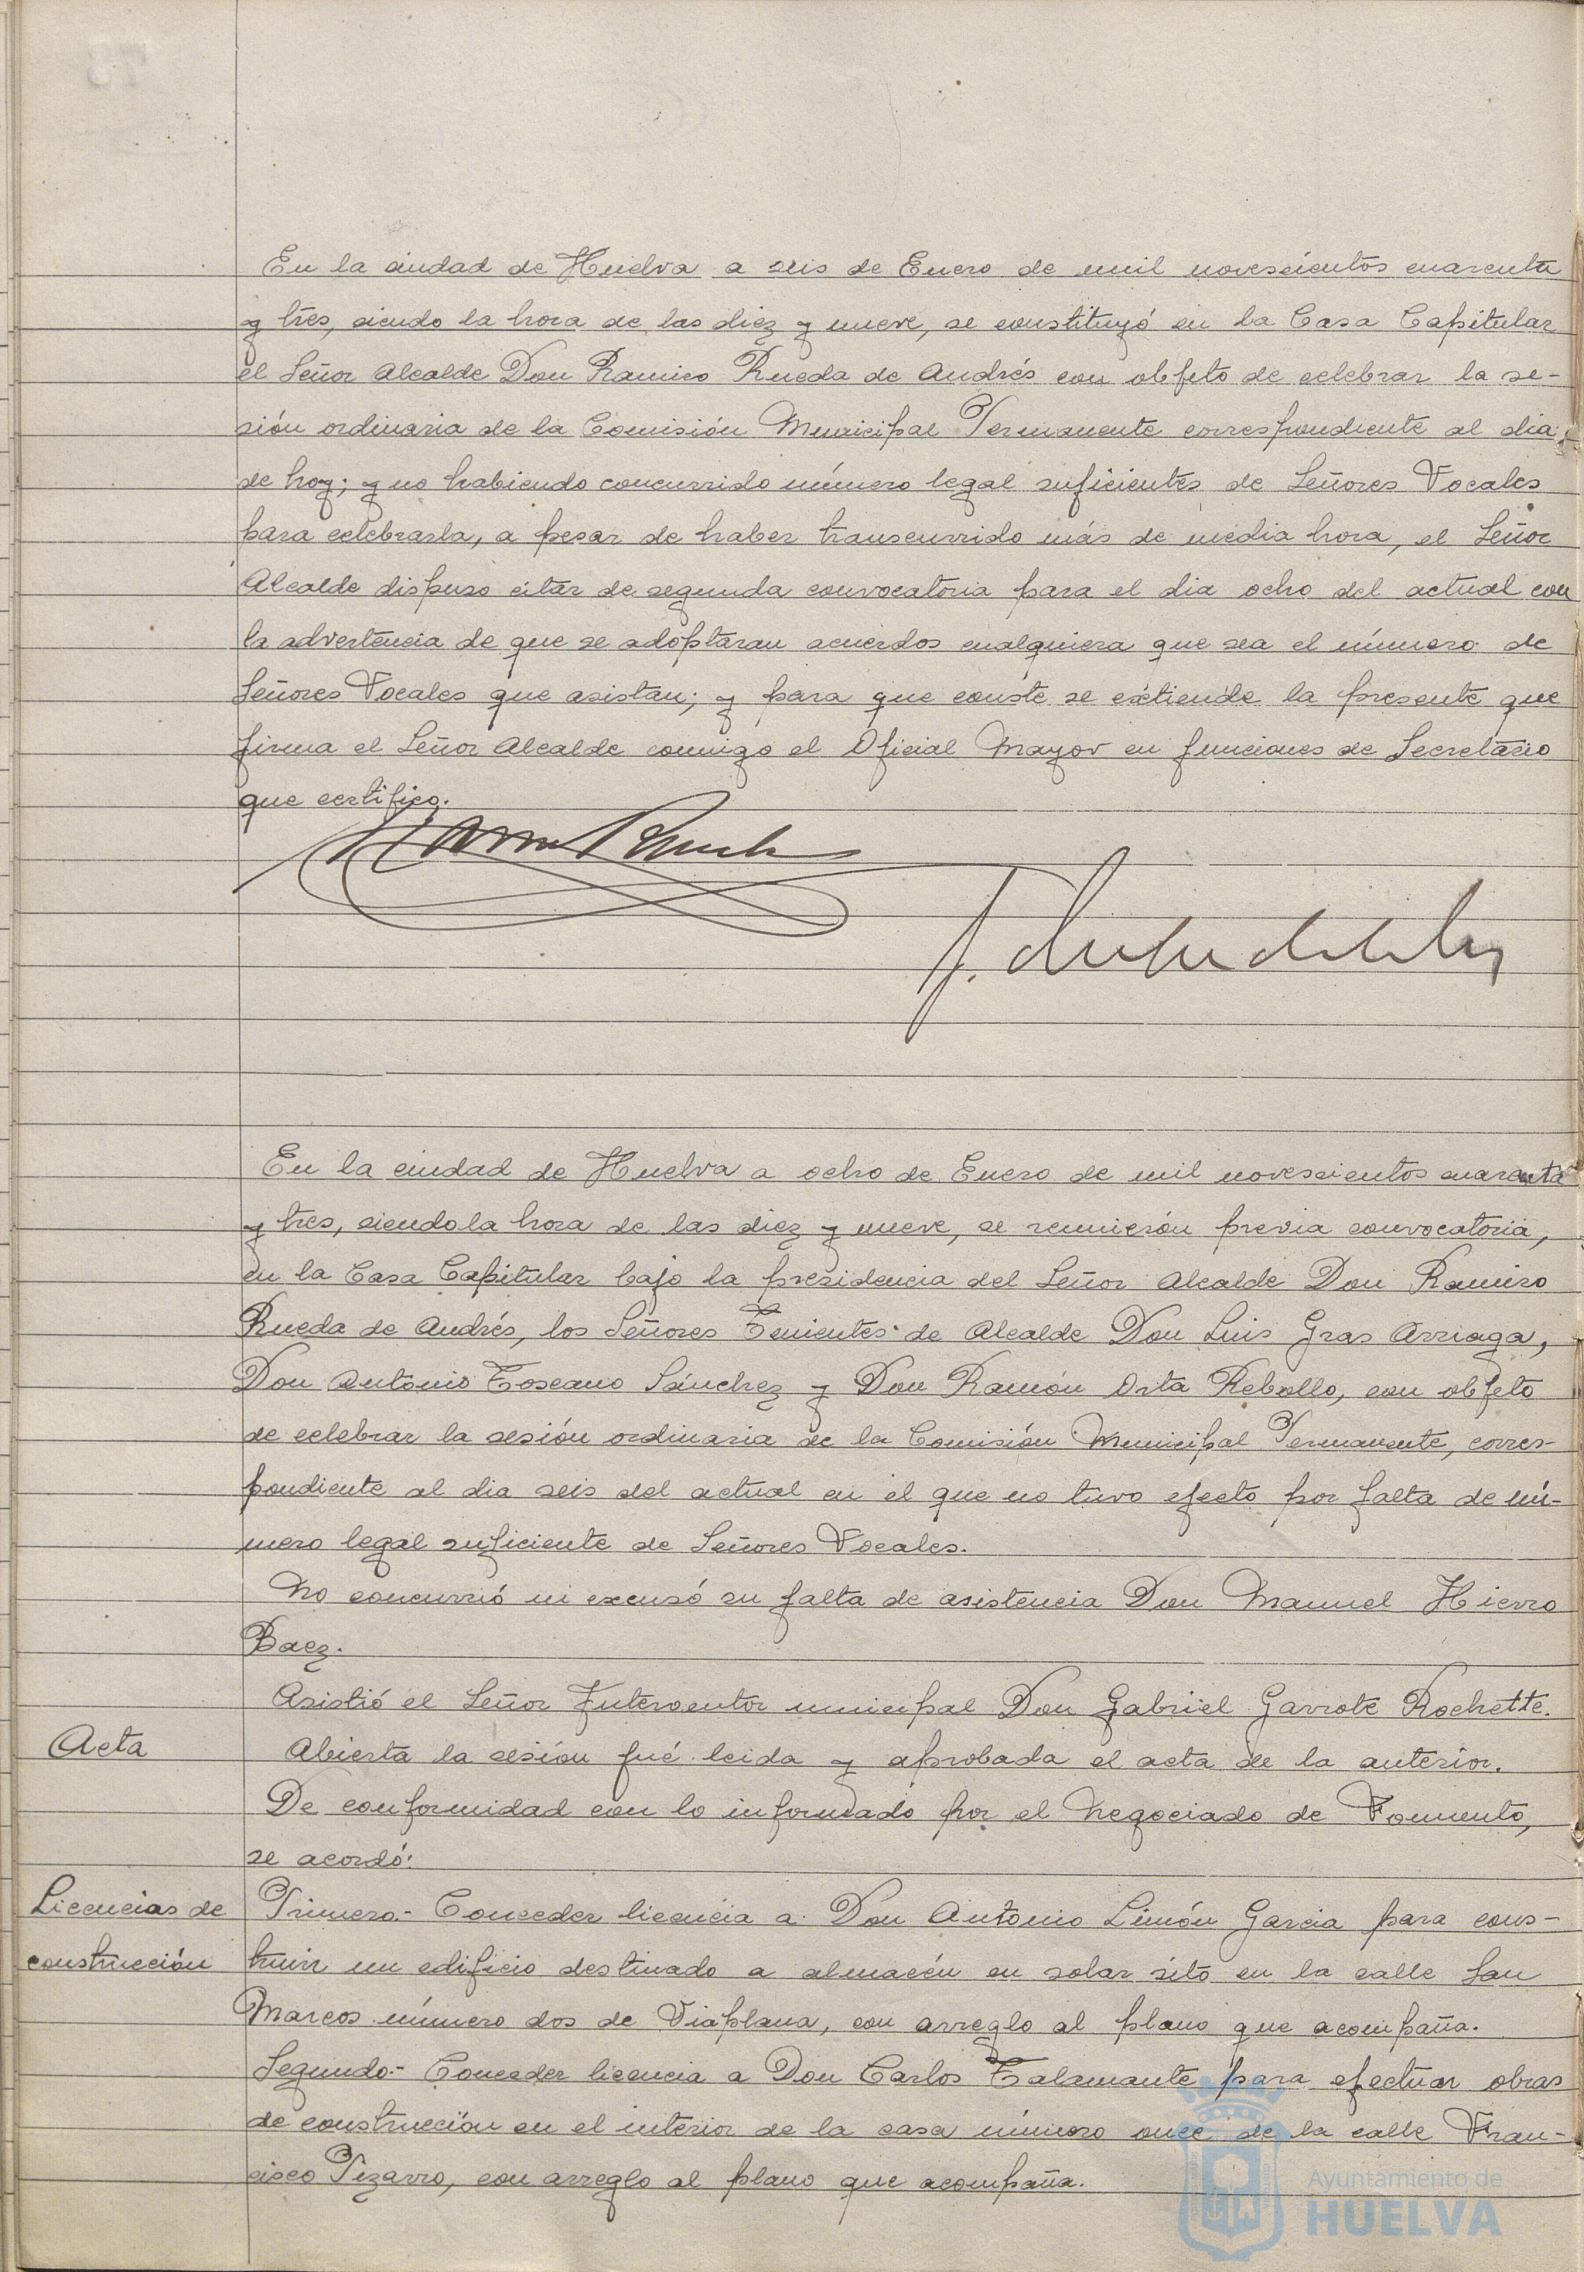 En la ciudad de Huelva a seis de Enero de mil novescientos cuarenta
y tres, siendo la hora de las diez y nueve, se constituyó en la Casa Capitular
el Señor Alcalde Don Ramiro Rueda de Andrés con objeto de celebrar la se-
sión ordinaria de la Comisión Municipal Permanente correspondiente al dia
de hoy; y no habiendo concurrido número legal suficientes de Señores Vocales
para celebrarla, a pesar de haber transcurrido más de media hora, el Señor
Alcalde dispuso citar de segunda convocatoria para el dia ocho del actual con
la advertencia de que se adoptaran acuerdos cualquiera que sea el número de
Señores Vocales que asistan; y para que conste se extiende la presente que
firma el Señor Alcalde conmigo el Oficial Mayor en funciones de Secretario
que certifico.
En la ciudad de Huelva a ocho de Enero de mil novescientos cuarenta
y tres, siendo la hora de las diez y nueve, se reunieron previa convocatoria,
en la Casa Capitular bajo la presidencia del Señor Alcalde Don Ramiro
Rueda de Andrés, los Señores Tenientes de Alcalde Don Luis Gras Arriaga,
Don Antonio Toscano Sánchez y Don Ramón Orta Rebollo, con objeto
de celebrar la sesión ordinaria de la Comisión Municipal Permanente, corres-
pondiente al dia seis del actual en el que no tuvo efecto por falta de nú-
mero legal suficiente de Señores Vocales.
No concurrió ni excusó su falta de asistencia Don Manuel Hierro
Baez.
Asistió el Señor Interventor municipal Don Gabriel Garrote Rochette.
Acta
Abierta la sesión fué leida y aprobada el acta de la anterior.
De conformidad con lo informado por el Negociado de Fomento,
se acordó:
Licencias de construcción
Primero.- Conceder licencia a Don Antonio Limón Garcia para cons-
truir un edificio destinado a almacén en solar sito en la calle San
Marcos número dos de Viaplana, con arreglo al plano que acompaña.
Segundo.- Conceder licencia a Don Carlos Talamante para efectuar obras
de construcción en el interior de la casa número once de la calle Fran-
cisco Pizarro, con arreglo al plano que acompaña.
Ayuntamiento de
HUELVA